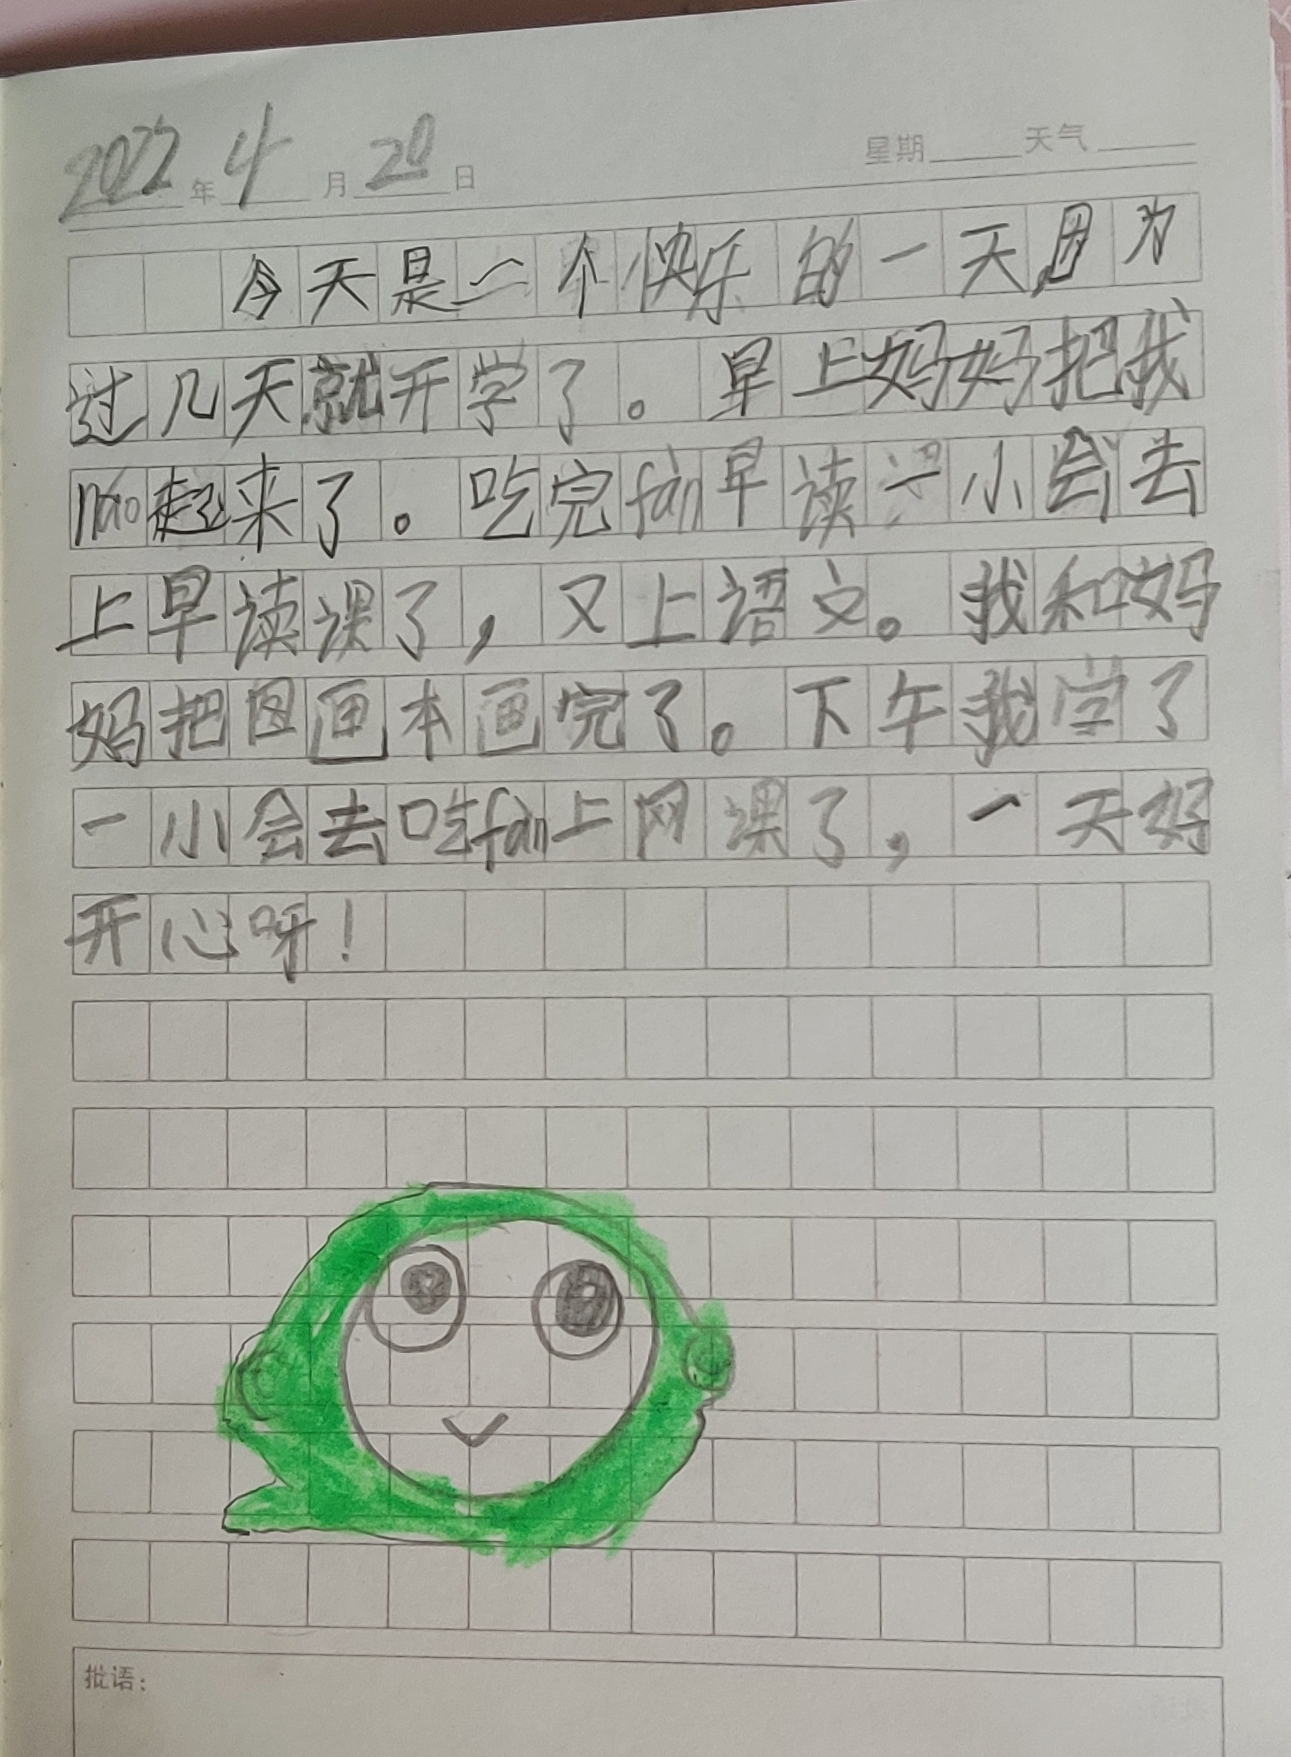 2022年4月20日 星期 天气
今天是一个快乐的一天,因为
过几天就开学了。早上妈妈把我
nao起来了。吃完fàn早读一小会去
上早读课了,又上语文。我和妈
妈把图画本画完了。下午我学了
一小会去吃fàn上网课了,一天好
开心呀!
批语: